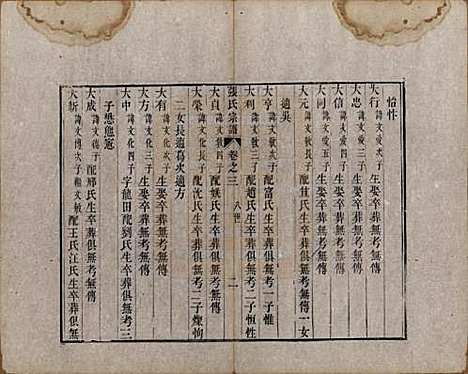 怡性
大行 諱文愛次子 生娶卒葬無考無傳
大忠 諱文愛三子 生娶卒葬無考無傳
大信 諱文愛四子 生娶卒葬無考無傳
大同 諱文愛五子 生娶卒葬無考無傳
大元 諱文敏長子 配 氏生卒葬俱無考無傳一女
適吳
大亨 諱文敏次子 配富氏生卒葬俱無考一子惟
大利 諱文敏三子 配趙氏生卒葬俱無考二子恆性
張氏宗譜 卷之三 八世 二
大貞 諱文敏四子 配 氏生卒葬俱無考無傳
大榮 諱文化長子 配 氏生卒葬俱無考二子 恂
二女長適葛次適方
大有 諱文化次子 生娶卒葬無考無傳
大方 諱文化三子 生娶卒葬無考無傳
大中 諱文化四子 字龍田配劉氏生卒葬俱無考三
子 恩
大成 諱文 子 配鄒氏生卒葬俱無考無傳
大新 諱文 次子 繼文敏 配王氏江氏生卒葬俱無